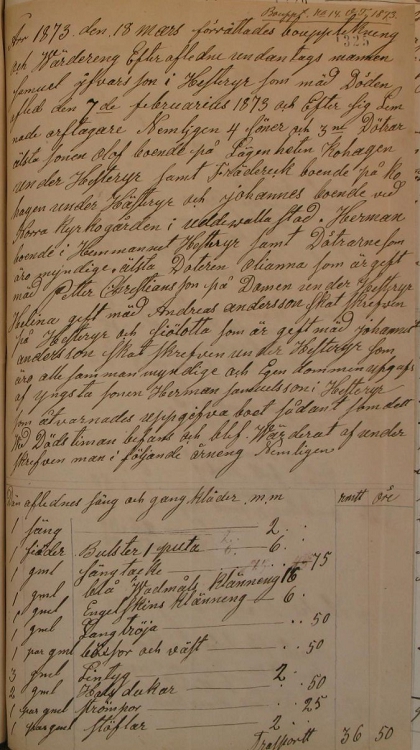 Bouppt. No 14. 1873.
År 1873 den 18 mars förrättades bouppteckning
och Wärdering Efter aflidne undantags mannen
Samuel Olfvarsson i Hesteryr som mäd Döden
afled den 7de februarius 1873 och Efter sig lem
nade arftagare Nemligen 4 söner och 3ne Dötrar
älsta sonen Olof boende på Lägenheten Kohagen
under Hesteryr samt Frederick boende på Ko
hagen under Hästeryr och Johannes boende vid
Norra Kyrkogården i uddewalla stad. Herman
boende i Hemmannet Hesteryr samt Dötrarne som
äro myndige, älsta Doteren Olianna som är gift
mäd Petter Christiansson på Damen under Hesteryr
Helina gift mäd Andreas andersson skat skrefven
på Hesteryr och som är gift mäd johannes
andersson skat skrefven under Hesteryr som
äro alla samman myndige och Egen dommen uppgafs
af yngsta sonen Herman samuelsson i Hesteryr
som åtvarnades uppgifva boet sådant som dett
wid Döds timan befans och blef Wärderat af under
skrefven man i följande årneng Nemligen
Den aflednes säng och gang kläder m.m rmtt öre
1 säng 2
1 fiäder Bulster 1 puta 6
1 gml sängtäcke 75
1 gml blå Wadmåls Klänneng 16
1 gml Engelskins Klänneng 6
1 gml Langtröja 50
1 par gml bixsor och väst 50
3 gml Lintyg 2
2 gml Halsdukar 50
1 par gml strömpor 25
1 par gml stöflar 2
Transportt 36 50